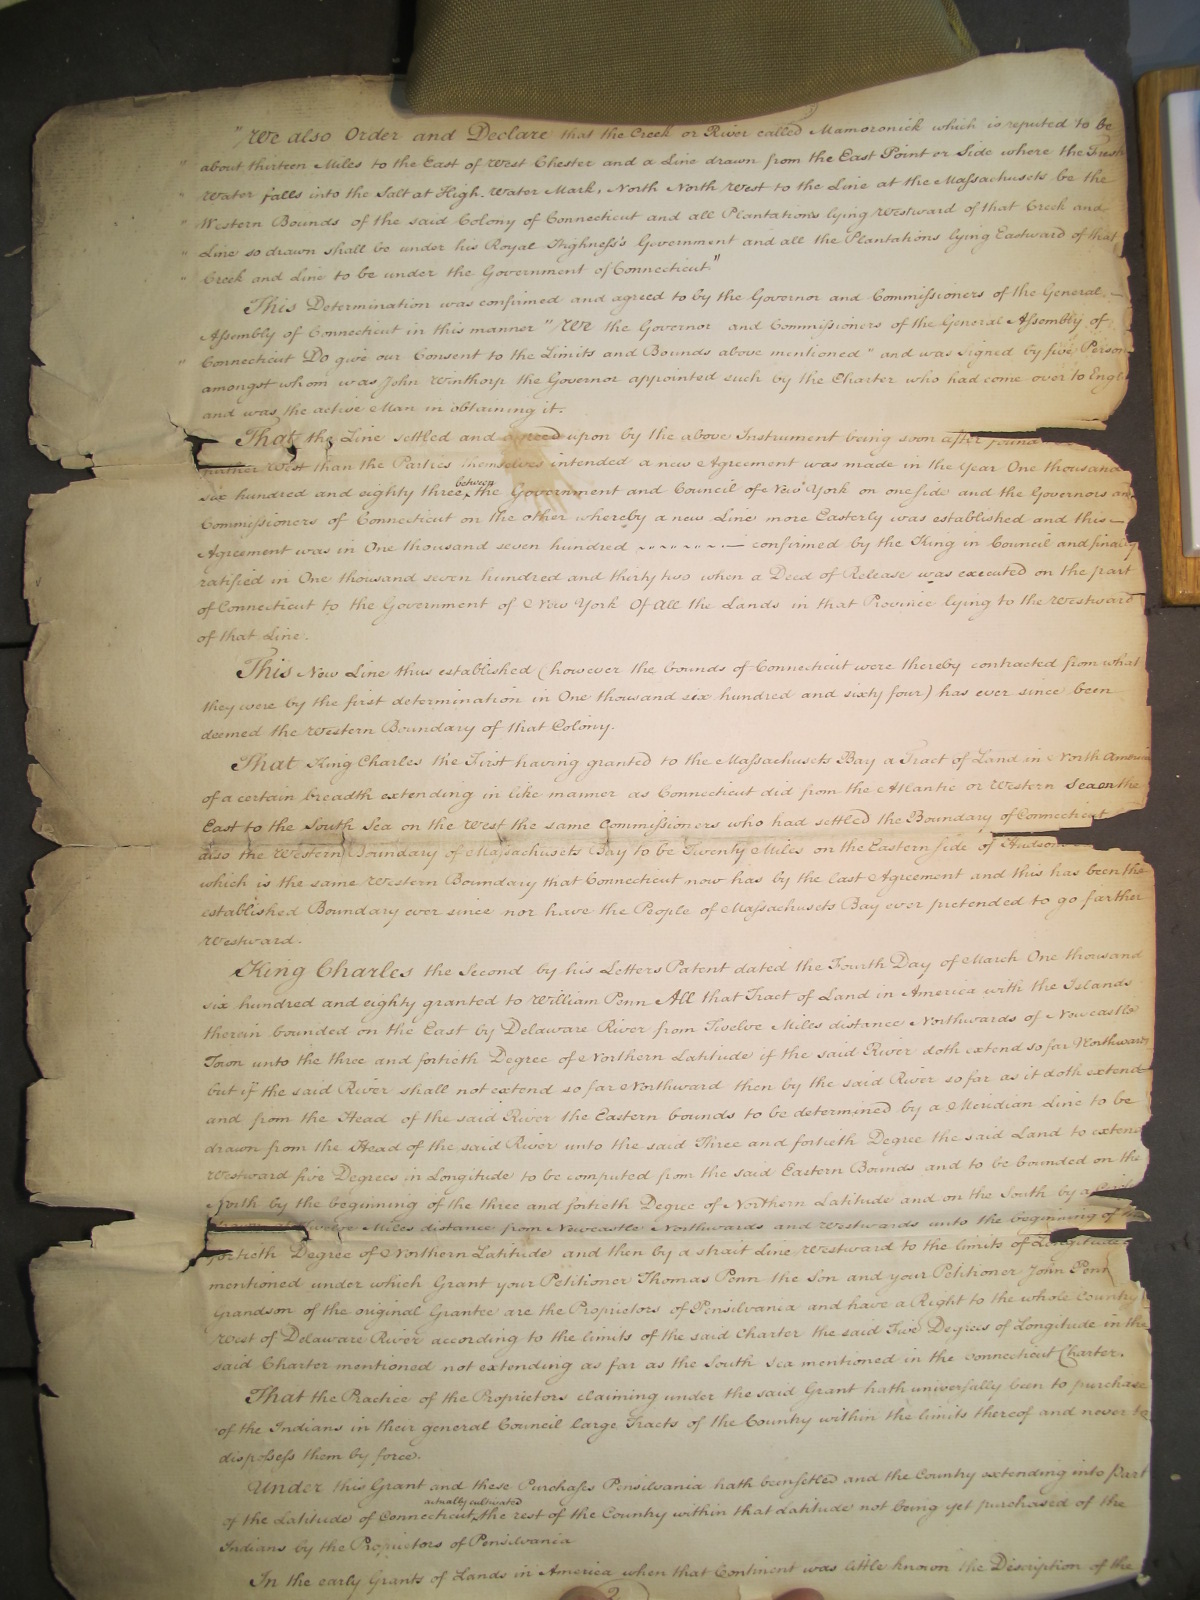 "We also Order and Declare that the Creek or River called Mamoronick which is reputed to be
" about thirteen Miles to the East of West Chester and a Line drawn from the East Point or Side where the Fresh
" Water falls into the Salt at High-Water Mark, North North West to the Line at the Massachusets be the
" Western Bounds of the said Colony of Connecticut and all Plantations lying Westward of that Creek and
" Line so drawn shall be under his Royal Highness's Government and all the Plantations lying Eastward of that
" Creek and Line to be under the Government of Connecticut"
This Determination was confirmed and agreed to by the Governor and Commissioners of the General
Assembly of Connecticut in this manner "We the Governor and Commissioners of the General Assembly of
" Connecticut Do give our Consent to the Limits and Bounds above mentioned" and was signed by five Person
amongst whom was John Winthorp the Governor appointed such by the Charter who had come over to Engl
and was the active Man in obtaining it.
That the Line settled and agreed upon by the above Instrument being soon after found
further West than the Parties themselves intended a new Agreement was made in the Year One thousand
six hundred and eighty three between the Government and Council of New York on one side and the Governors and
Commissioners of Connecticut on the other whereby a new Line more Easterly was established and this
Agreement was in One thousand seven hundred confirmed by the King in Council and finally
ratified in One thousand seven hundred and thirty two when a Deed of Release was executed on the part
of Connecticut to the Government of New York Of All the Lands in that Province lying to the Westward
of that Line.
This New Line thus established (however the bounds of Connecticut were thereby contracted from what
they were by the first determination in One thousand six hundred and sixty four) has ever since been
deemed the Western Boundary of that Colony.
That King Charles the First having granted to the Massachusets Bay a Tract of Land in North America
of a certain breadth extending in like manner as Connecticut did from the Atlantic or Western Sea on the
East to the South Sea on the West the same Commissioners who had settled the Boundary of Connecticut
also the Western Boundary of Massachusets Bay to be Twenty Miles on the Eastern side of Hudsons
which is the same Western Boundary that Connecticut now has by the last Agreement and this has been the
established Boundary ever since nor have the People of Massachusets Bay ever pretended to go farther
Westward.
King Charles the Second by his Letters Patent dated the Fourth Day of March One thousand
six hundred and eighty granted to William Penn All that Tract of Land in America with the Islands
therein bounded on the East by Delaware River from Twelve Miles distance Northwards of Newcastle
Town unto the three and fortieth Degree of Northern Latitude if the said River doth extend so far Northwards
but if the said River shall not extend so far Northward then by the said River so far as it doth extend
and from the Head of the said River the Eastern bounds to be determined by a Meridian Line to be
drawn from the Head of the said River unto the said Three and fortieth Degree the said Land to extend
Westward five Degrees in Longitude to be computed from the said Eastern Bounds and to be bounded on the
North by the beginning of the three and fortieth Degree of Northern Latitude and on the South by a
drawn at Twelve Miles distance from Newcastle Northwards and Westwards unto the beginning of the
fortieth Degree of Northern Latitude and then by a strait Line Westward to the limits of Longitude
mentioned under which Grant your Petitioner Thomas Penn the Son and your Petitioner John Penn
Grandson of the original Grantee are the Proprietors of Pensilvania and have a Right to the whole Country
West of Delaware River according to the limits of the said Charter the said Five Degrees of Longitude in the
said Charter mentioned not extending as far as the South Sea mentioned in the Connecticut Charter.
That the Practice of the Proprietors claiming under the said Grant hath universally been to purchase
of the Indians in their general Council large Tracts of the Country within the limits thereof and never to
dispossess them by force.
Under this Grant and these Purchases Pensilvania hath been settled and the Country extending into part
of the Latitude of Connecticut actually cultivated, the rest of the Country within that Latitude not being yet purchased of the
Indians by the Proprietors of Pensilvania
In the early Grants of Lands in America when that Continent was little known the Description of the
2